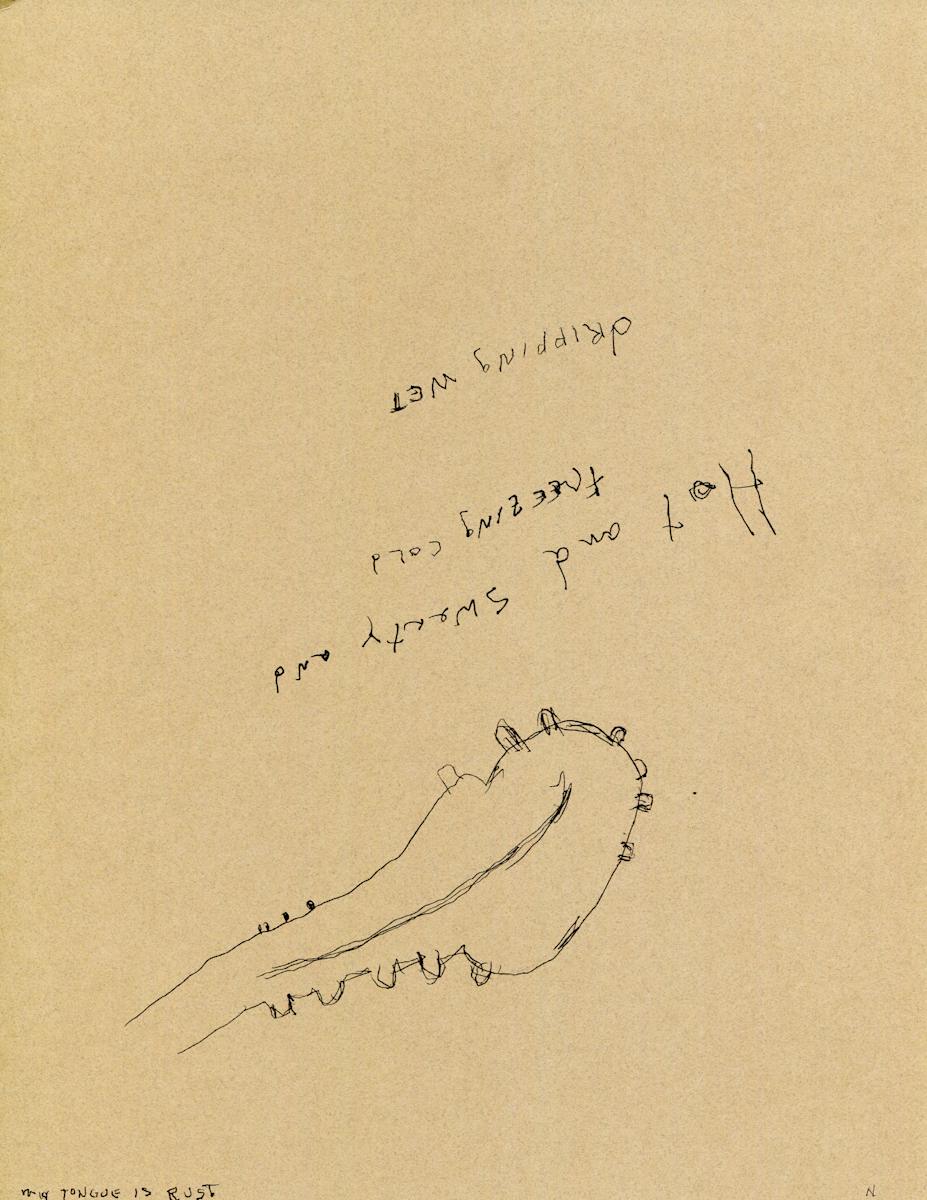 Hot and SweetY and
FREEZING COLD
dRIPPING WET
my TONGUE IS RUST
N